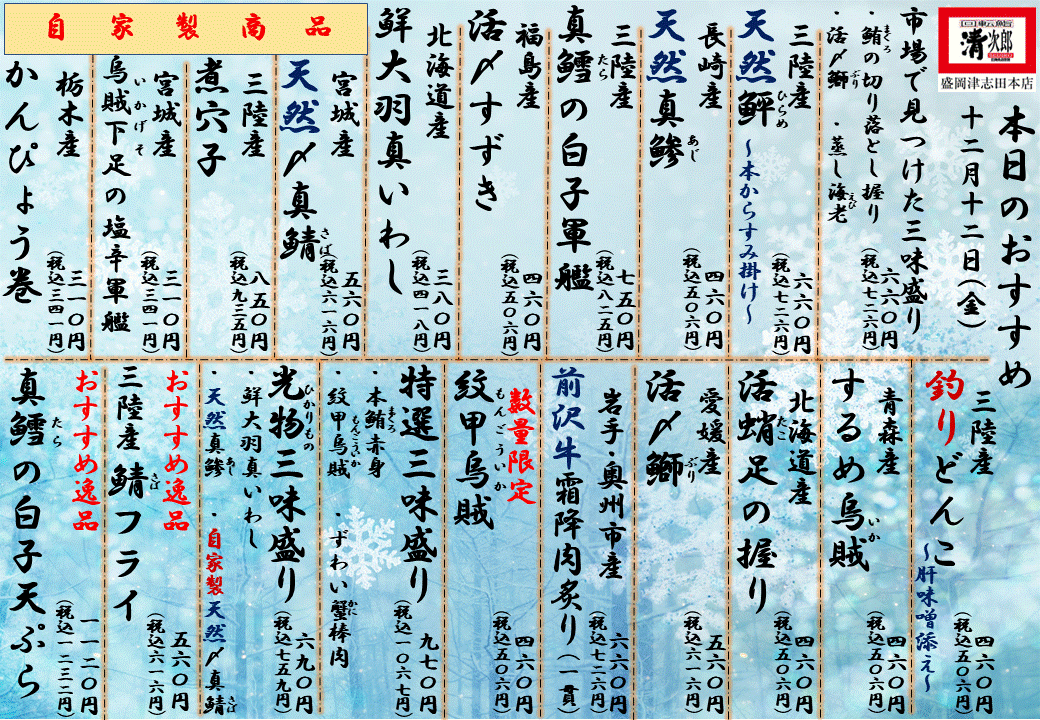 回転鮨
清次郎
盛岡津志田本店
本日のおすすめ
十二月十二日(金)
市場で見つけた三味盛り
・鮪の切り落とし握り
まぐろ
・活〆鰤 ・蒸し海老
ぶり
えび
六六〇円
(税込七二六円)
三陸産
天然鮃 ~本からすみ掛け~
ひらめ
六六〇円
(税込七二六円)
長崎産
天然真鯵
あじ
四六〇円
(税込五〇六円)
三陸産
真鱈の白子軍艦
たら
七五〇円
(税込八二五円)
福島産
活〆すずき
四六〇円
(税込五〇六円)
北海道産
鮮大羽真いわし
三八〇円
(税込四一八円)
自家製商品
宮城産
天然〆真鯖
さば
五六〇円
(税込六一六円)
三陸産
煮穴子
八五〇円
(税込九三五円)
宮城産
烏賊下足の塩辛軍艦
いかげそ
三一〇円
(税込三四一円)
栃木産
かんぴょう巻
三一〇円
(税込三四一円)
三陸産
釣りどんこ
~肝味噌添え~
四六〇円
(税込五〇六円)
青森産
するめ烏賊
いか
四六〇円
(税込五〇六円)
北海道産
活蛸足の握り
たこ
四六〇円
(税込五〇六円)
愛媛産
活〆鰤
ぶり
五六〇円
(税込六一六円)
岩手・奥州市産
前沢牛霜降肉炙り(一貫)
六六〇円
(税込七二六円)
数量限定
紋甲烏賊
もんごういか
四六〇円
(税込五〇六円)
特選三味盛り
・本鮪赤身 ・ずわい蟹棒肉
まぐろ
かに
・紋甲烏賊
もんごういか
九七〇円
(税込一〇六七円)
光物三味盛り
ひかりもの
・鮮大羽真いわし
・天然真鯵 ・自家製天然〆真鯖
あじ
さば
六九〇円
(税込七五九円)
おすすめ逸品
三陸産 鯖フライ
さば
五六〇円
(税込六一六円)
おすすめ逸品
真鱈の白子天ぷら
たら
一一二〇円
(税込一二三二円)